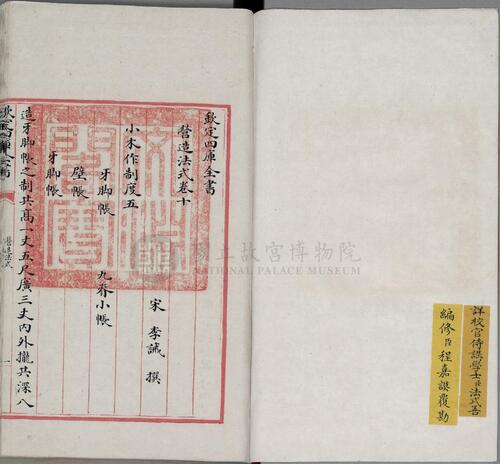 詳校官侍講學士臣法式善
編修臣程嘉謨覆勘
欽定四庫全書
營造法式卷十
宋 李誡 撰
小木作制度五
牙脚帳 九脊小帳
壁帳
牙脚帳
造牙脚帳之制共高一丈五尺廣三丈內外攏共深八
欽定四庫全書
營造法式
一
文淵閣寶
國立故宮博物院
NATIONAL PALACE MUSEUM